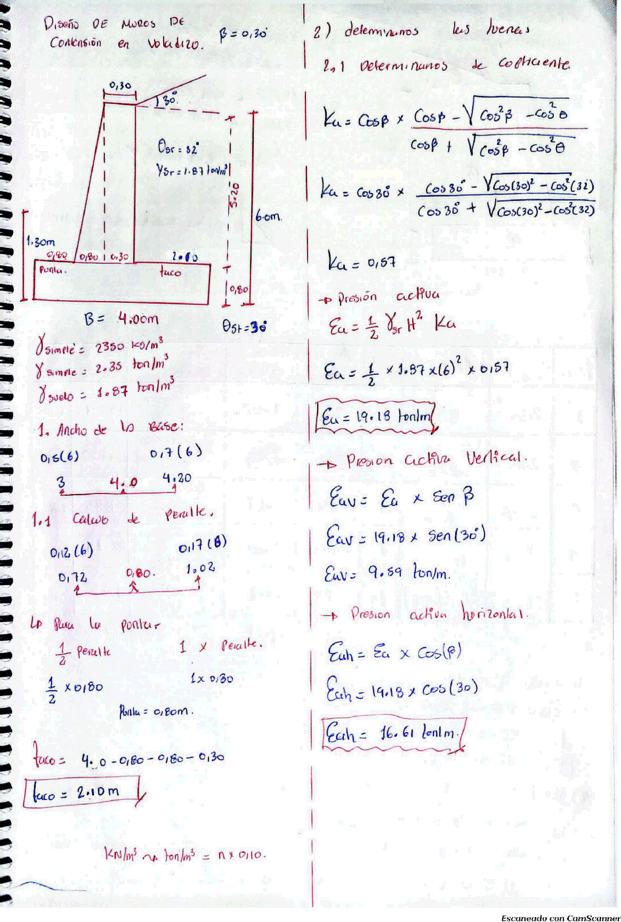 Diseño DE MUROS DE
Contensión en Voladizo. β = 0,30°
0,30
30°
θsr = 32°
γsr = 1.87 ton/m³
5.20
6.0m
1.30m
0,80 0,80 0,30 2.10
Punta. taco
0,80
B = 4.00m
θst = 30°
γsimple = 2350 KG/m³
γsimple = 2.35 ton/m³
γsuelo = 1.87 ton/m³
1. Ancho de la Base:
0,5(6) 0,7(6)
3 4.0 4.20
1.1 Calculo de Peralte.
0,12(6) 0,17(6)
0,72 0,80. 1.02
↳ Para la punta
1/2 Peralte 1 x Peralte.
1/2 x 0,80 1 x 0,80
Punta = 0,80m.
taco = 4.0 - 0,80 - 0,80 - 0,30
taco = 2.10 m
KN/m³ ~ ton/m³ = n x 0,10.
2) determinamos las fuerzas
2.1 Determinanos de coeficiente
Ka = Cosβ × (Cosβ - √(Cos²β - cos²θ)) / (cosβ + √(Cos²β - Cos²θ))
Ka = cos30° × (Cos30° - √(Cos(30)² - Cos²(32))) / (Cos30° + √(Cos(30)² - Cos²(32)))
Ka = 0,57
→ Presión activa
Ea = 1/2 γsr H² Ka
Ea = 1/2 × 1.87 × (6)² × 0,57
Ea = 19.18 ton/m
→ Presion activa Vertical.
Eav = Ea × Sen β
Eav = 19.18 × Sen(30°)
Eav = 9.59 ton/m.
→ Presion activa horizontal.
Eah = Ea × Cos(β)
Eah = 19.18 × Cos(30)
Eah = 16.61 ton/m.
Escaneado con CamScanner